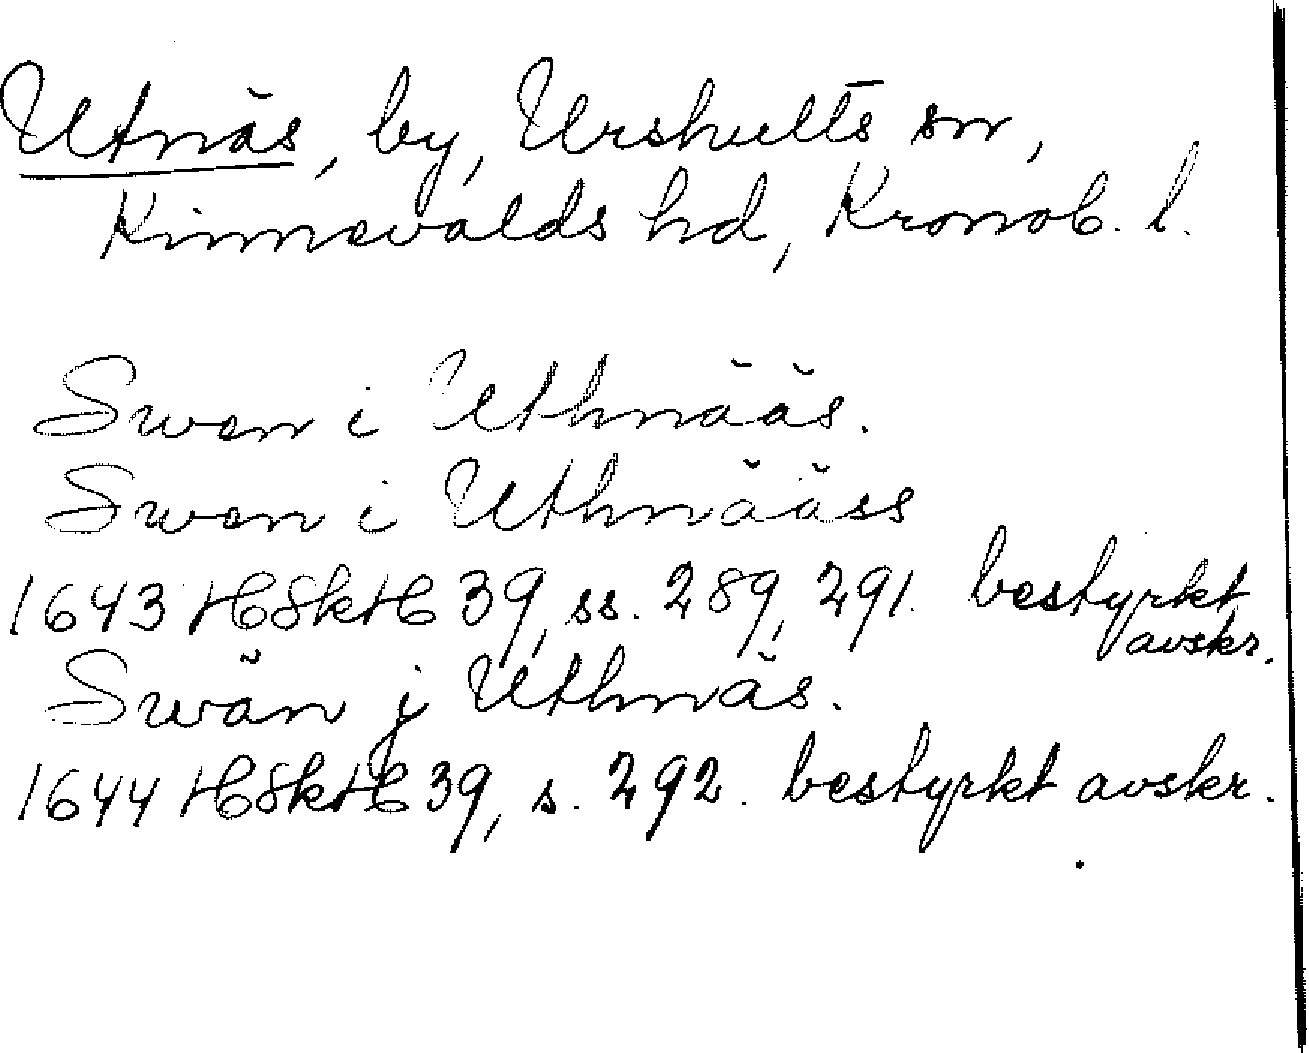 Utnäs, by, Urshults sn,
Kinnevalds hd, Kronob. l.
Swen i Uthnääs.
Swen i Uthnääss
1643 HSkH 39, ss. 289, 291. bestyrkt
avskr.
Swän j Uthnäs.
1644 HSkH 39, s. 292. bestyrkt avskr.